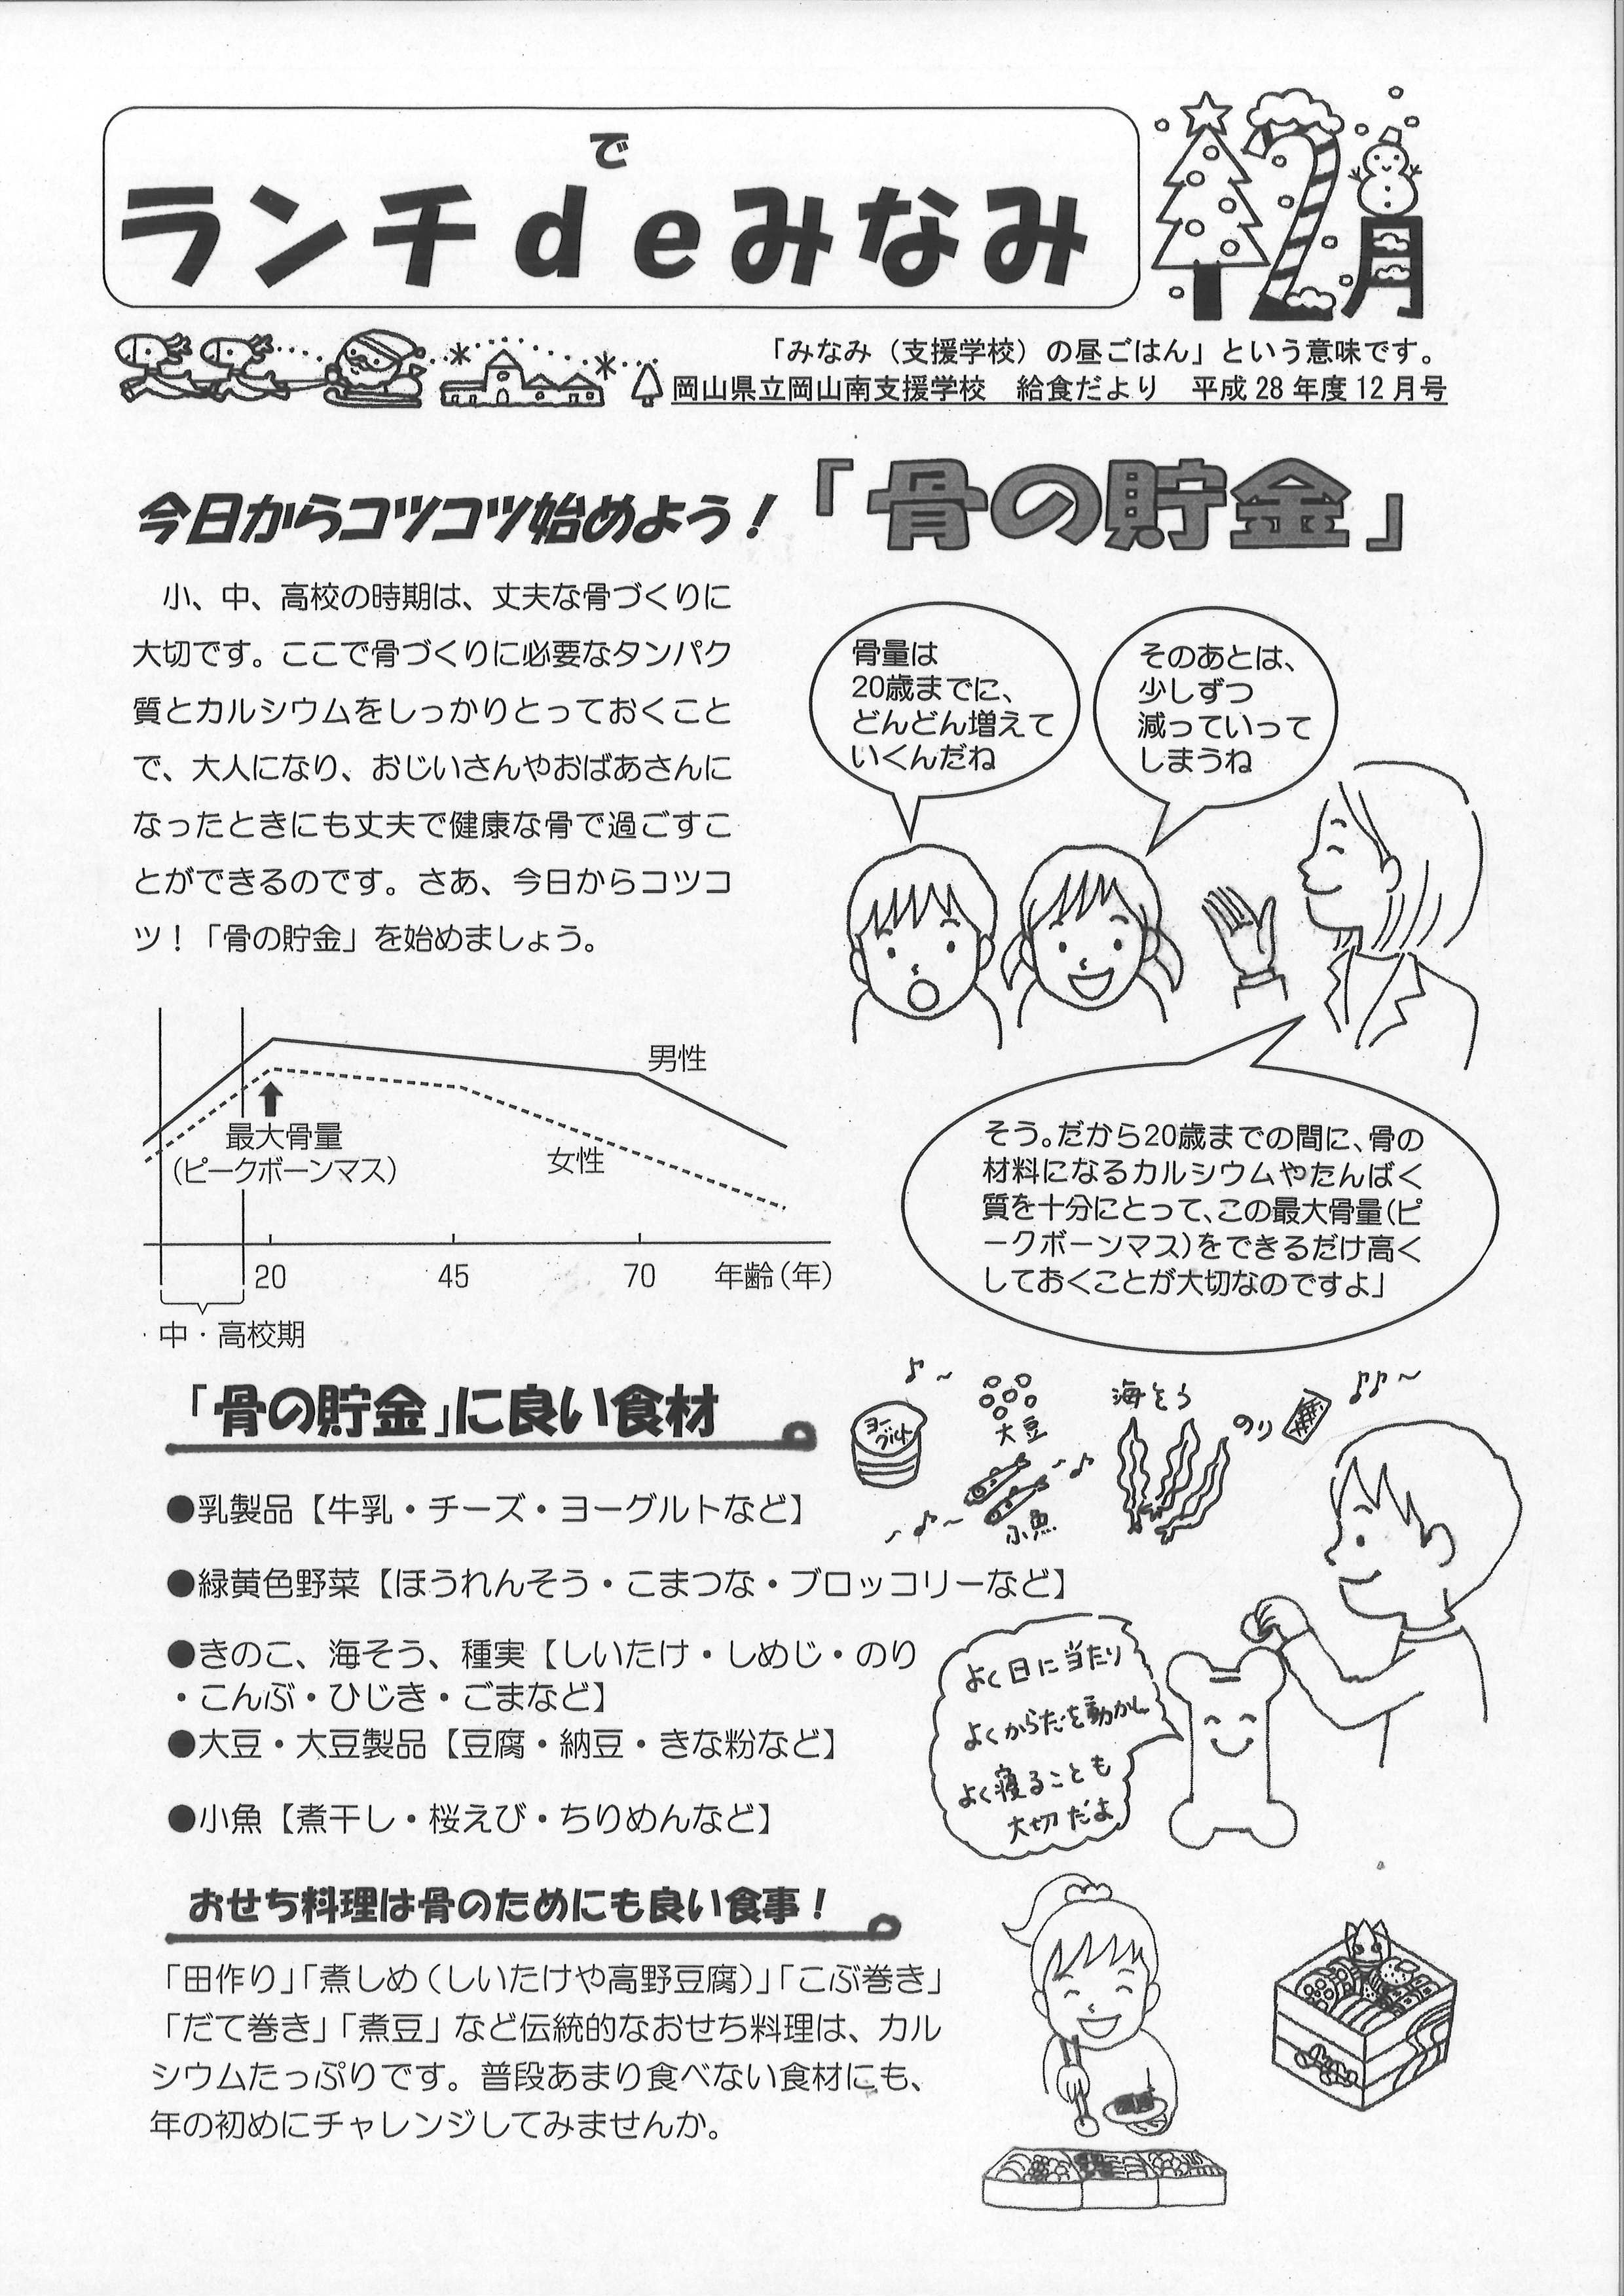 で
ランチdeみなみ
12月
「みなみ（支援学校）の昼ごはん」という意味です。
岡山県立岡山南支援学校　給食だより　平成28年度12月号
今日からコツコツ始めよう！
「骨の貯金」
小、中、高校の時期は、丈夫な骨づくりに
大切です。ここで骨づくりに必要なタンパク
質とカルシウムをしっかりとっておくこと
で、大人になり、おじいさんやおばあさんに
なったときにも丈夫で健康な骨で過ごすこ
とができるのです。さあ、今日からコツコ
ツ！「骨の貯金」を始めましょう。
骨量は
20歳までに、
どんどん増えて
いくんだね
そのあとは、
少しずつ
減っていって
しまうね
そう。だから20歳までの間に、骨の
材料になるカルシウムやたんぱく
質を十分にとって、この最大骨量（ピ
ークボーンマス）をできるだけ高く
しておくことが大切なのですよ」
男性
最大骨量
（ピークボーンマス）
女性
20
45
70
年齢（年）
中・高校期
「骨の貯金」に良い食材
●乳製品【牛乳・チーズ・ヨーグルトなど】
●緑黄色野菜【ほうれんそう・こまつな・ブロッコリーなど】
●きのこ、海そう、種実【しいたけ・しめじ・のり
・こんぶ・ひじき・ごまなど】
●大豆・大豆製品【豆腐・納豆・きな粉など】
●小魚【煮干し・桜えび・ちりめんなど】
ヨー
グルト
大豆
小魚
海そう
のり
よく日に当たり
よくからだを動かし
よく寝ることも
大切だよ
おせち料理は骨のためにも良い食事！
「田作り」「煮しめ（しいたけや高野豆腐）」「こぶ巻き」
「だて巻き」「煮豆」など伝統的なおせち料理は、カル
シウムたっぷりです。普段あまり食べない食材にも、
年の初めにチャレンジしてみませんか。